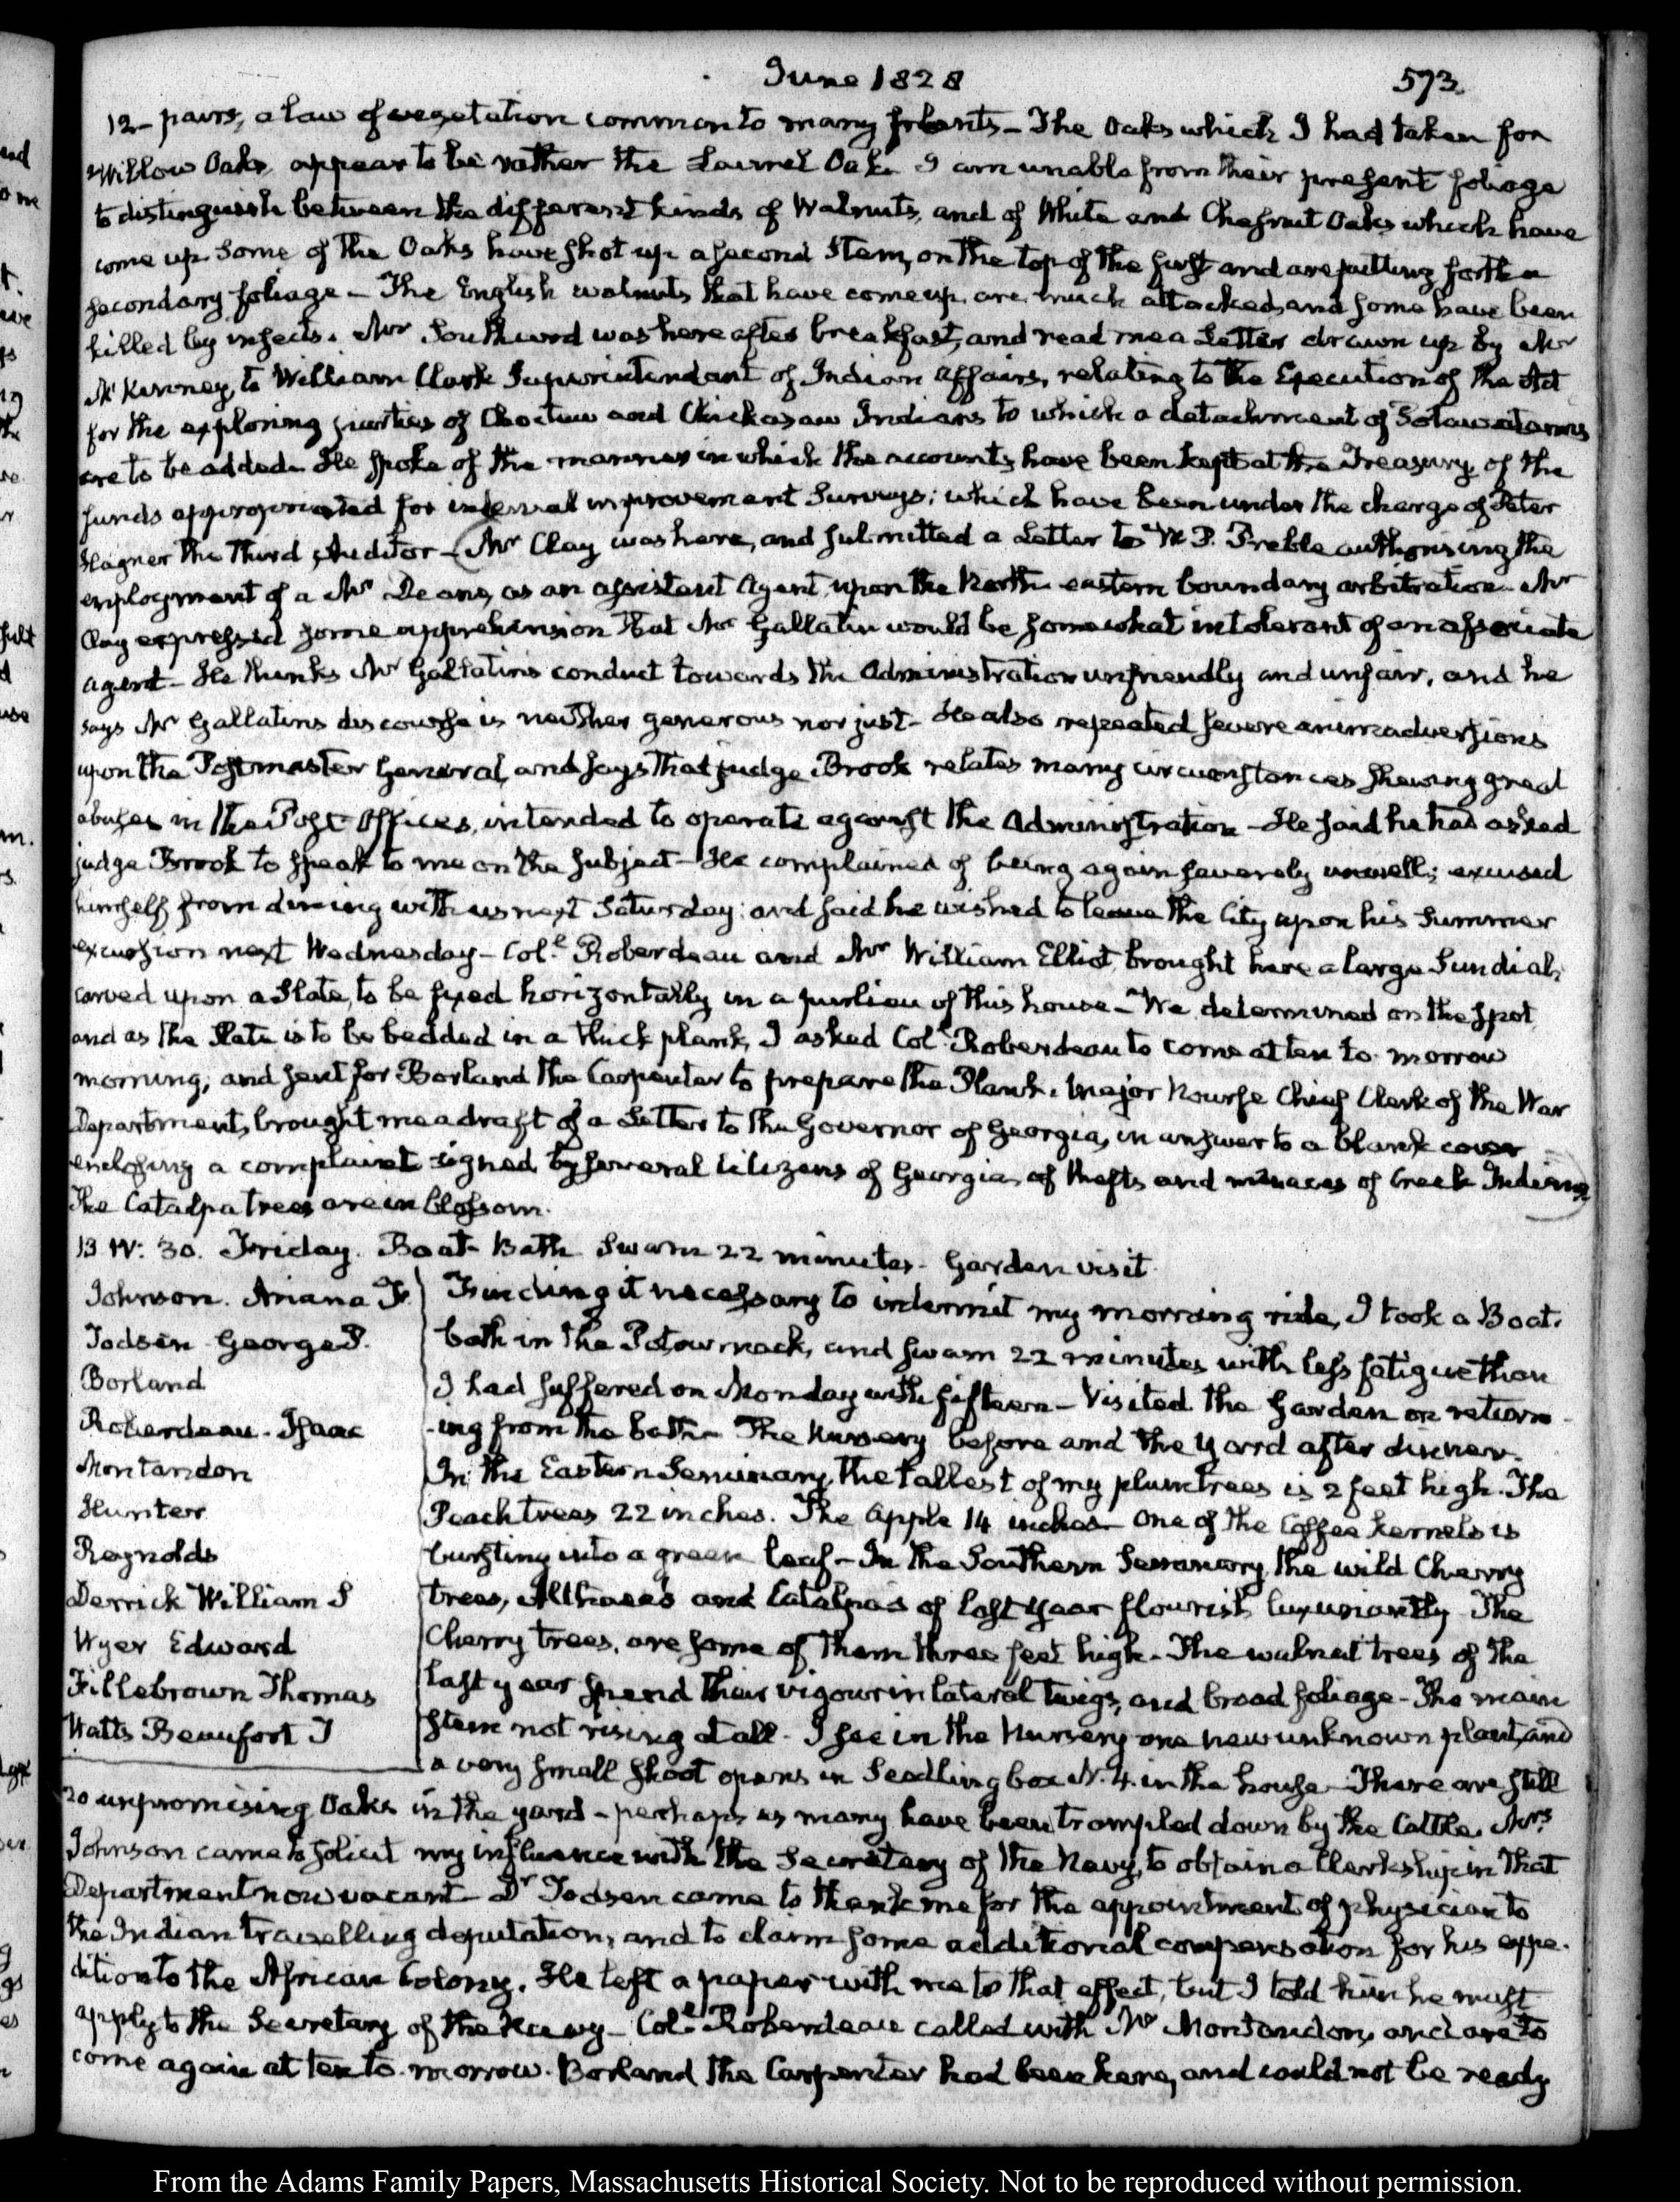 June 1828
573.
12- pairs, a law of vegetation common to many plants - The Oaks which I had taken for
Willow Oaks, appear to be rather the Laurel Oak. I am unable from their present foliage
to distinguish between the different kinds of Walnuts, and of White and Chesnut Oaks which have
come up. Some of the Oaks have shot up a second Stem, on the top of the first and are putting forth a
secondary foliage - The English walnuts that have come up, are much attacked, and some have been
killed by insects. Mr Southard was here after breakfast, and read me a Letter drawn up by Mr
McKenney, to William Clark Superintendant of Indian Affairs, relating to the Execution of the Act
for the exploring parties of Choctaw and Chickasaw Indians to which a detachment of Potawatamis
are to be added. He spoke of the manner in which the accounts have been kept at the Treasury of the
funds appropriated for internal improvement Surveys; which have been under the charge of Peter
Hagner the Third Auditor - Mr Clay was here, and submitted a Letter to W. P. Preble authorising the
employment of a Mr Deane, as an assistant Agent, upon the North eastern boundary arbitration - Mr
Clay expressed some apprehension that Mr Gallatin would be somewhat intolerant of an associate
Agent - He thinks Mr Gallatin's conduct towards the Administration unfriendly and unfair, and he
says Mr Gallatins discourse is neither generous nor just - He also repeated severe animadversions
upon the Postmaster General, and says that judge Brook relates many circumstances shewing great
abuses in the Post-Offices, intended to operate against the Administration - He said he had asked
judge Brook to speak to me on the subject - He complained of being again severely unwell; excused
himself from dining with us next Saturday; and said he wished to leave the City upon his Summer
excursion next Wednesday - Coll. Roberdeau and Mr William Elliot, brought here a large Sundial,
carved upon a Slate, to be fixed horizontally in a purlieu of this house - We determined on the spot
and as the Slate is to be bedded in a thick plank, I asked Coll. Roberdeau to come at ten to-morrow
morning, and sent for Borland the Carpenter to prepare the Plank. Major Nourse Chief Clerk of the War
Department, brought me a draft of a Letter to the Governor of Georgia, in answer to a blank cover
enclosing a complaint signed by several citizens of Georgia, of thefts and menaces of Creek Indians
The Catalpa trees are in blossom.
13. IV: 30. Friday. Boat-Bath Swam 22 minutes. Garden visit
Johnson. Ariana Jr.
Todsen George P.
Borland
Roberdeau - Isaac
Montandon
Hunter
Reynolds
Derrick William S
Wyer Edward
Fillebrown Thomas
Watts Beaufort T
Finding it necessary to intermit my morning ride, I took a Boat-
bath in the Potowmack, and swam 22 minutes with less fatigue than
I had suffered on Monday with fifteen - Visited the Garden on return-
-ing from the bath - The Nursery before and the Yard after dinner.
In the Eastern Seminary, the tallest of my plumtrees is 2 feet high. The
Peach trees 22 inches. The Apple 14 inches - One of the Coffee kernels is
bursting into a green leaf - In the Southern Seminary, the wild Cherry
trees, Althaea's and Catalpas of last year flourish luxuriantly - The
Cherry trees, are some of them three feet high - The walnut trees of the
last year spend their vigour in lateral twigs, and broad foliage - The main
stem not rising at all - I see in the Nursery one new unknown plant, and
a very small shoot opens in Seedling box N. 4. in the house - There are still
20 unpromising Oaks in the yard - perhaps as many have been trampled down by the Cattle. Mrs
Johnson came to solicit my influence with the Secretary of the Navy, to obtain a Clerkship in that
Department now vacant - Dr Todsen came to thank me for the appointment of physician to
the Indian travelling deputation, and to claim some additional compensation for his expe-
dition to the African Colony. He left a paper with me to that effect, but I told him he must
apply to the Secretary of the Navy - Coll. Roberdeau called with Mr Montandon, and are to
come again at ten to-morrow. Borland the Carpenter had been here, and could not be ready
From the Adams Family Papers, Massachusetts Historical Society. Not to be reproduced without permission.